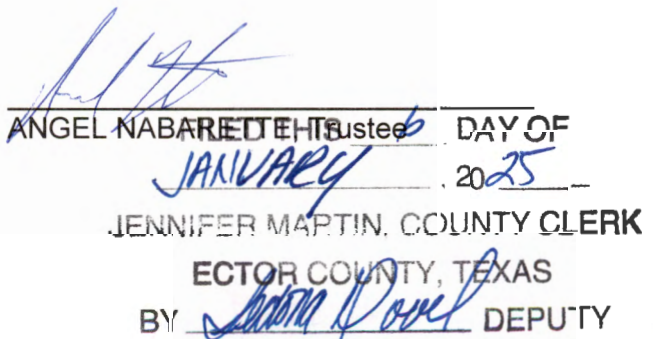 ANGEL NABARETTE, Trustee
FILED THIS 6 DAY OF
JANUARY, 2025
JENNIFER MARTIN, COUNTY CLERK
ECTOR COUNTY, TEXAS
BY DEPUTY